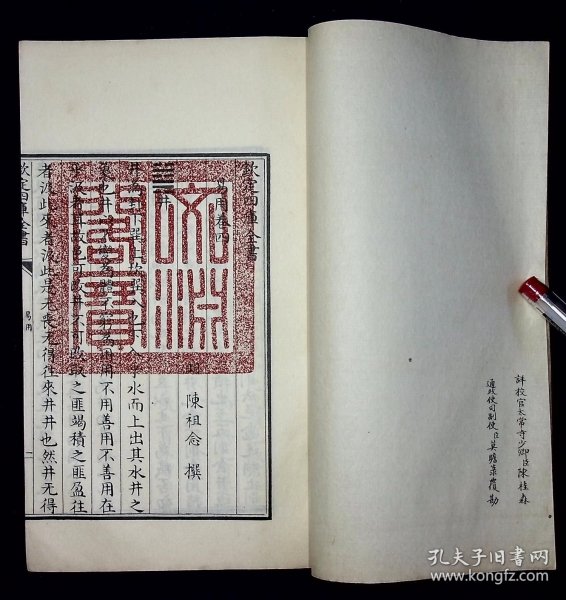 詳校官太常寺少卿臣陳桂森
通政使司副使臣莫瞻菉覆勘
欽定四庫全書
易用卷四
明 陳祖念 撰
井
文淵閣寶
用不用善用不善用在
井不可改取之匪竭積之匪盈往
者汲此來者汲此是无喪无得往來井井也然井无得
欽定四庫全書
易用
孔夫子旧书网
www.kongfz.com